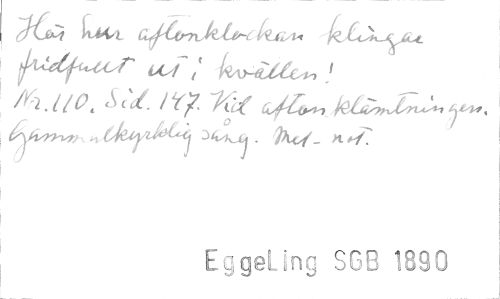 Hör hur aftonklockan klingar
fridfullt ut i kvällen!
Nr. 110. Sid. 147. Vid aftonklämtningen.
Gammalkyrklig sång. Mel-not.
EggeLing SGB 1890